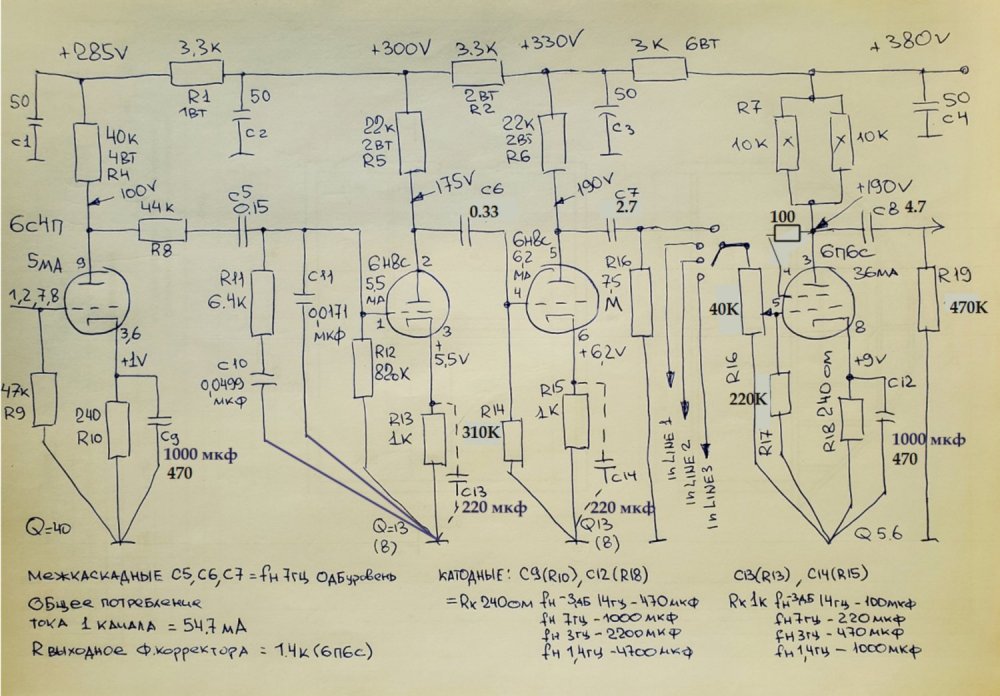 +285V
3,3K
+300V
3.3K
+330V
3K 6ВТ
+380V
R1
1ВТ
2ВТ
R2
50
C1
50
C2
50
C3
50
C4
40K
4ВТ
R4
100V
22K
2ВТ
R5
175V
22K
2ВТ
R6
190V
R7
10K
10K
+190V
6С4П
44K
R8
C5
0.15
C6
0.33
C7
2.7
100
C8 4.7
5МА
9
1,2,7,8
3,6
+1V
R11
6.4K
C11
0,0171
мкф
6Н8С
5,5
МА
2
1
3
+
5,5V
6Н8С
6,2
МА
4
5
6
+6,2V
R16
7,5
М
40K
R16
6П6С
3
36МА
4
5
8
+9V
R19
470K
47K
R9
240
R10
C9
1000 мкф
470
C10
0,0499
мкф
R12
820K
R13
1K
C13
220 мкф
R14
310K
R15
1K
C14
220 мкф
in LINE 1
in LINE 2
in LINE3
220K
R17
R18 240 ом
C12
1000 мкф
470
Q=40
Q=13
(8)
Q13
(8)
Q 5.6
МЕЖКАСКАДНЫЕ C5,C6,C7 = fн 7гц ОдБ уровень
Общее потребление
тока 1 канала = 54,7 мА
R выходное Ф.корректора = 1.4к (6П6С)
КАТОДНЫЕ: C9(R10), C12(R18)
= Rк 240 ом fн -3дБ 14гц - 470 мкф
fн 7гц - 1000 мкф
fн 3гц - 2200 мкф
fн 1,4гц - 4700 мкф
C13(R13) , C14(R15)
Rк 1к fн -3дБ 14гц - 100 мкф
fн 7гц - 220 мкф
fн 3гц - 470 мкф
fн 1,4гц - 1000 мкф